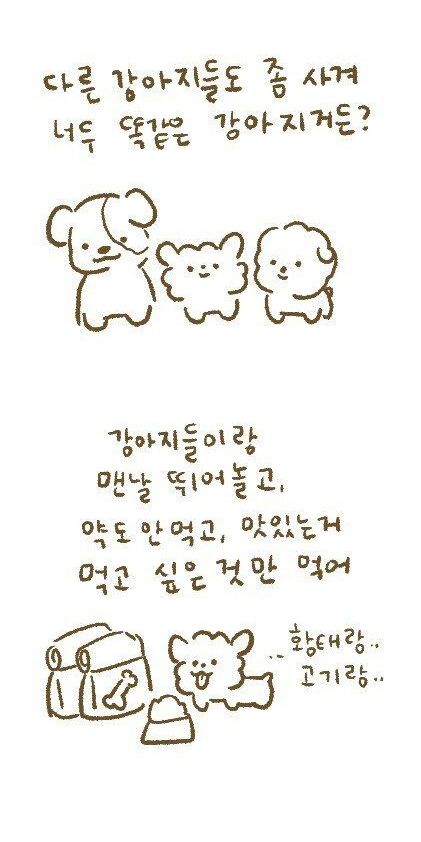 다른 강아지들도 좀 사겨
너두 똑같은 강아지거든?
강아지들이랑
맨날 뛰어놀고,
약도 안먹고, 맛있는거
먹고 싶은 것만 먹어
.. 황태랑..
고기랑..